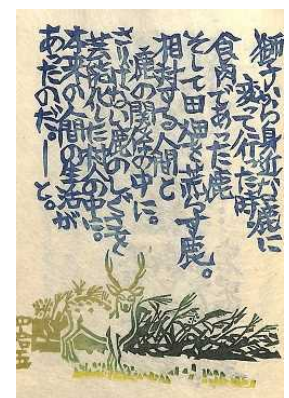 獅子から身近な鹿に
変って行った時
食肉であった鹿
そして田畑を荒らす鹿。
相対する人間と
鹿の関係の中に、
さりげない鹿のしぐさを
芸能化した村人の中に。
本来の人間の生活が
あったのだ。ーと。